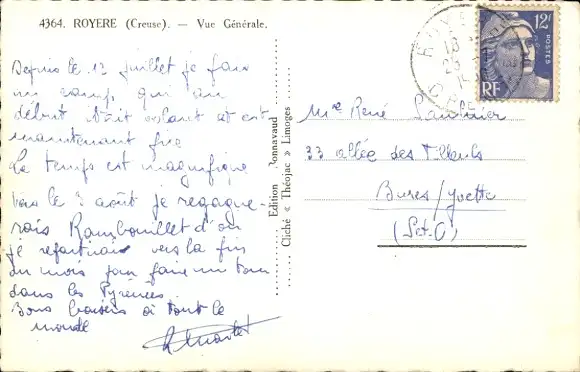 4364. ROYERE (Creuse). — Vue Générale.
Depuis le 13 juillet je fais
un camp qui au
début était volant et est
maintenant fixe
Le temps est magnifique
Vers le 3 août je regagne-
rais Rambouillet d'où
je repartirais vers la fin
du mois pour faire un tour
dans les Pyrénées
Bons baisers à tout le
monde
Edition Bonnavaud
Cliché « Théojac » Limoges
12F
POSTES
RF
Mr René
33 allée des Tilleuls
Bures/Yvette
(S-et-O)